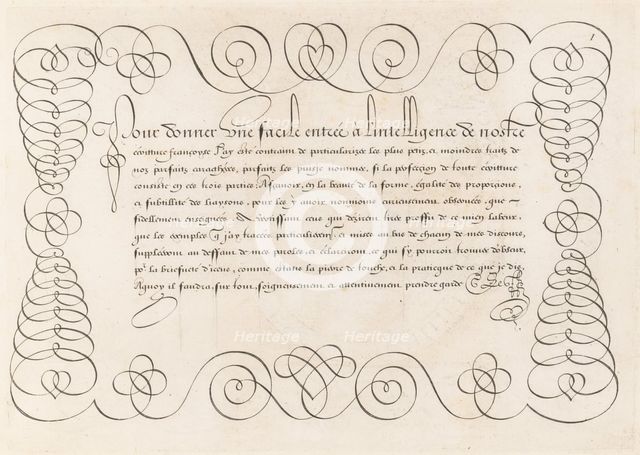 1
Pour donner Une facile entree a Lintelligence de nostre
écriture françoyse J'ay esté contraint de particularizer les plus petis, et moindres traits de
noz parfaits carathères, parfaits les puisje nommer, si la perfection de toute écriture
consiste en ces trois parties. Asçavoir, en la beauté de la forme, égalité des proporcions,
et subtillité des liaysons, pour les y avoir non moins curieusement observées que
fidellement enseignées. Avertissant ceus qui dezirent tirer proffit de ce mien labeur,
que les exemples q j'ay tracées particulierem.t et mises au bas de chacun de mes discours,
supplèeront au deffaut de mes paroles, et éclarciront ce qui s'y pourroit trouver d'obscur,
po.r la briefveté d'iceus, comme estans la pierre de touche, et la pratique de ce que je dis,
Aquoy il faudra, sur tout, soigneusement et attentivement prendre garde
Heritage
Heritage
Heritage
Heritage
Heritage
Heritage